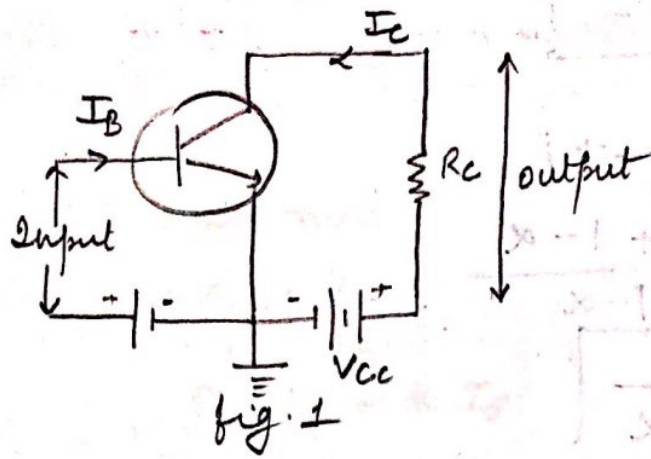 I_C
I_B
R_C
output
Input
+ -
- +
V_CC
fig. 1
+ 1 - α